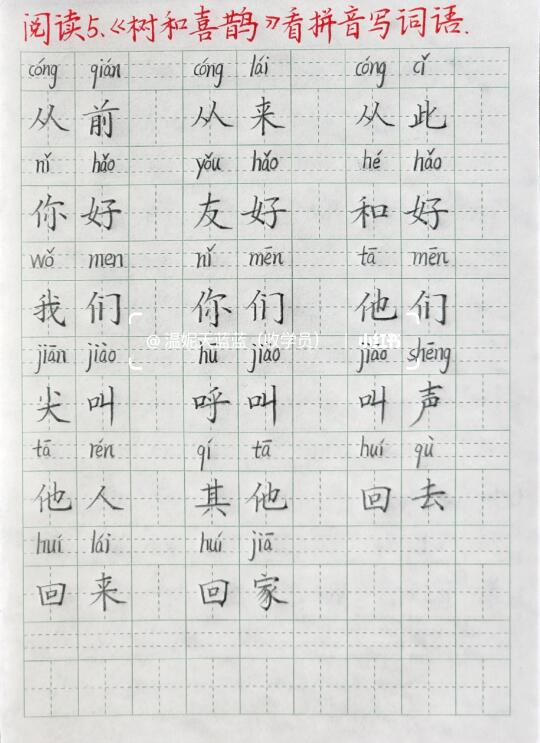 阅读5.《树和喜鹊》看拼音写词语.
cóng qián cóng lái cóng cǐ
从前 从来 从此
nǐ hǎo yǒu hǎo hé hǎo
你好 友好 和好
wǒ men nǐ mēn tā mēn
我们 你们 他们
@温妮天蓝蓝（收学员） 小红书
jiān jiào hū jiào jiào shēng
尖叫 呼叫 叫声
tā rén qí tā huí qù
他人 其他 回去
huí lái huí jiā
回来 回家